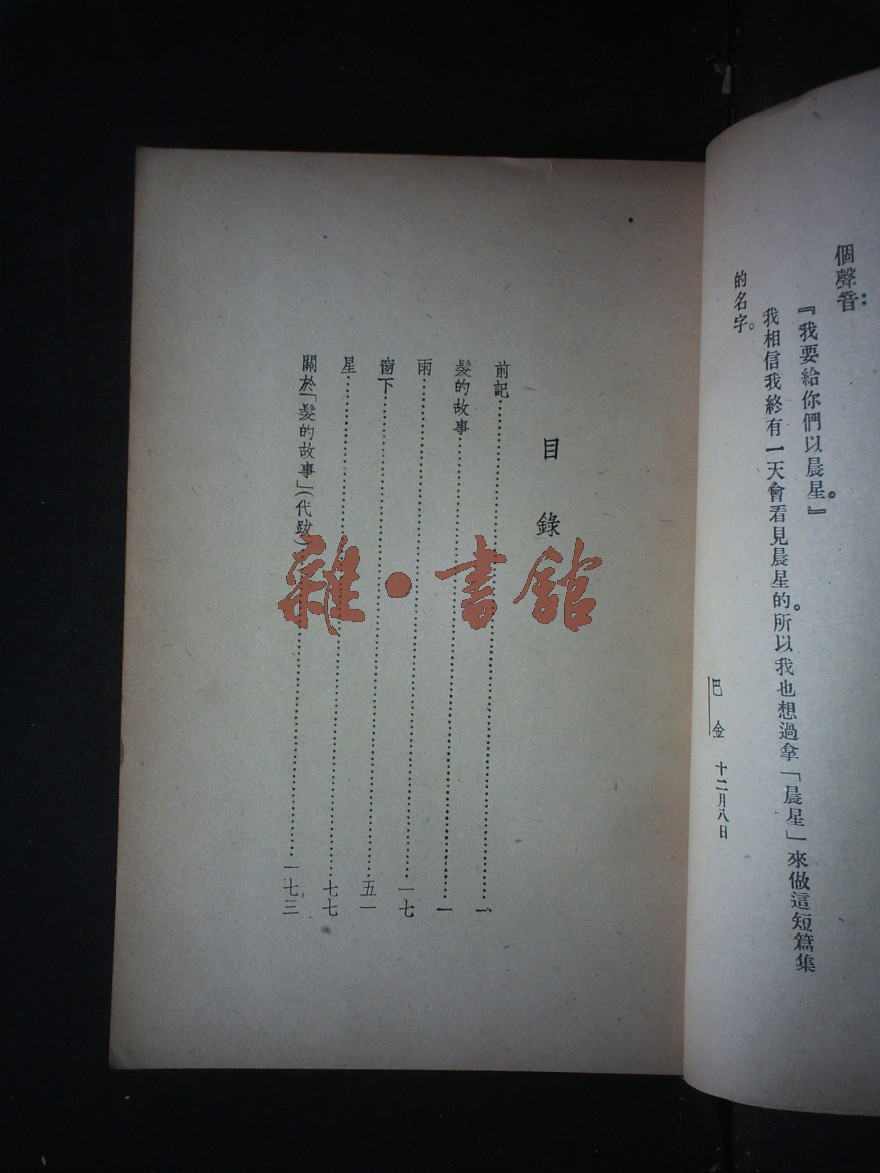 個聲音:
『我要給你們以晨星。』
我相信我終有一天會看見晨星的。所以我也想過拿「晨星」來做這短篇集
的名字。
巴金 十二月八日
目錄
前記……一
髮的故事……一
雨……一七
窗下……五一
星……七七
關於「髮的故事」(代跋)……一七三
雜·書館